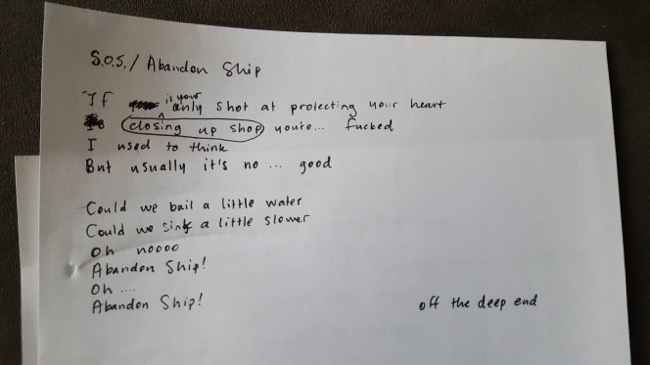 S.O.S./ Abandon Ship
If is your only shot at protecting your heart
closing up shop you're... fucked
I used to think
But usually it's no ... good
Could we bail a little water
Could we sink a little slower
Oh noooo
Abandon Ship!
Oh ....
Abandon Ship!
off the deep end